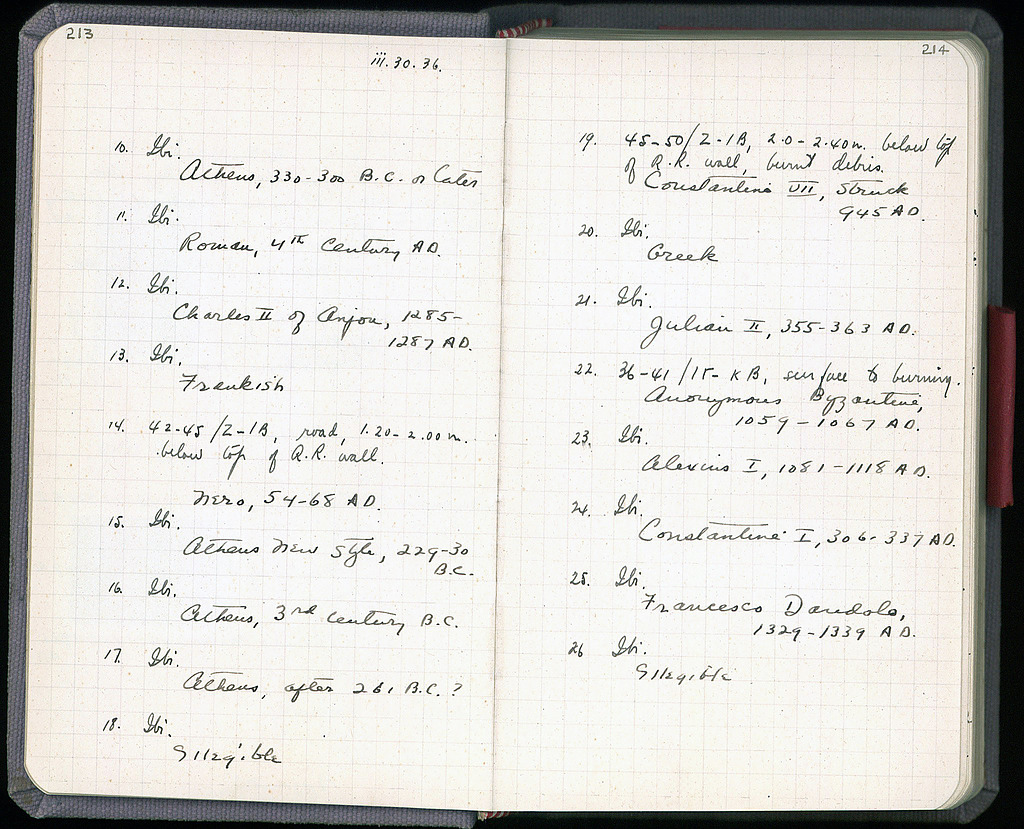 213
iii.30.36.
10. Ibi.
Athens, 330-300 B.C. or later
11. Ibi.
Roman, 4th Century AD.
12. Ibi.
Charles II of Anjou, 1285-
1287 AD.
13. Ibi.
Frankish
14. 42-45/Z-IB, road, 1.20-2.00 m.
below top of R.R. wall.
Nero, 54-68 AD.
15. Ibi.
Athens New Style, 229-30
B.C.
16. Ibi.
Athens, 3rd century B.C.
17. Ibi.
Athens, after 261 B.C.?
18. Ibi.
Illegible
214
19. 45-50/Z-IB, 2.0-2.40m. below top
of R.R. wall, burnt debris.
Constantine VII, struck
945 AD.
20. Ibi.
Greek
21. Ibi.
Julian II, 355-363 AD.
22. 36-41/ KB, surface to burning.
Anonymous Byzantine,
1059-1067 AD.
23. Ibi.
Alexius I, 1081-1118 AD.
24. Ibi.
Constantine I, 306-337 AD.
25. Ibi.
Francesco Dandolo,
1329-1339 AD.
26 Ibi.
Illegible